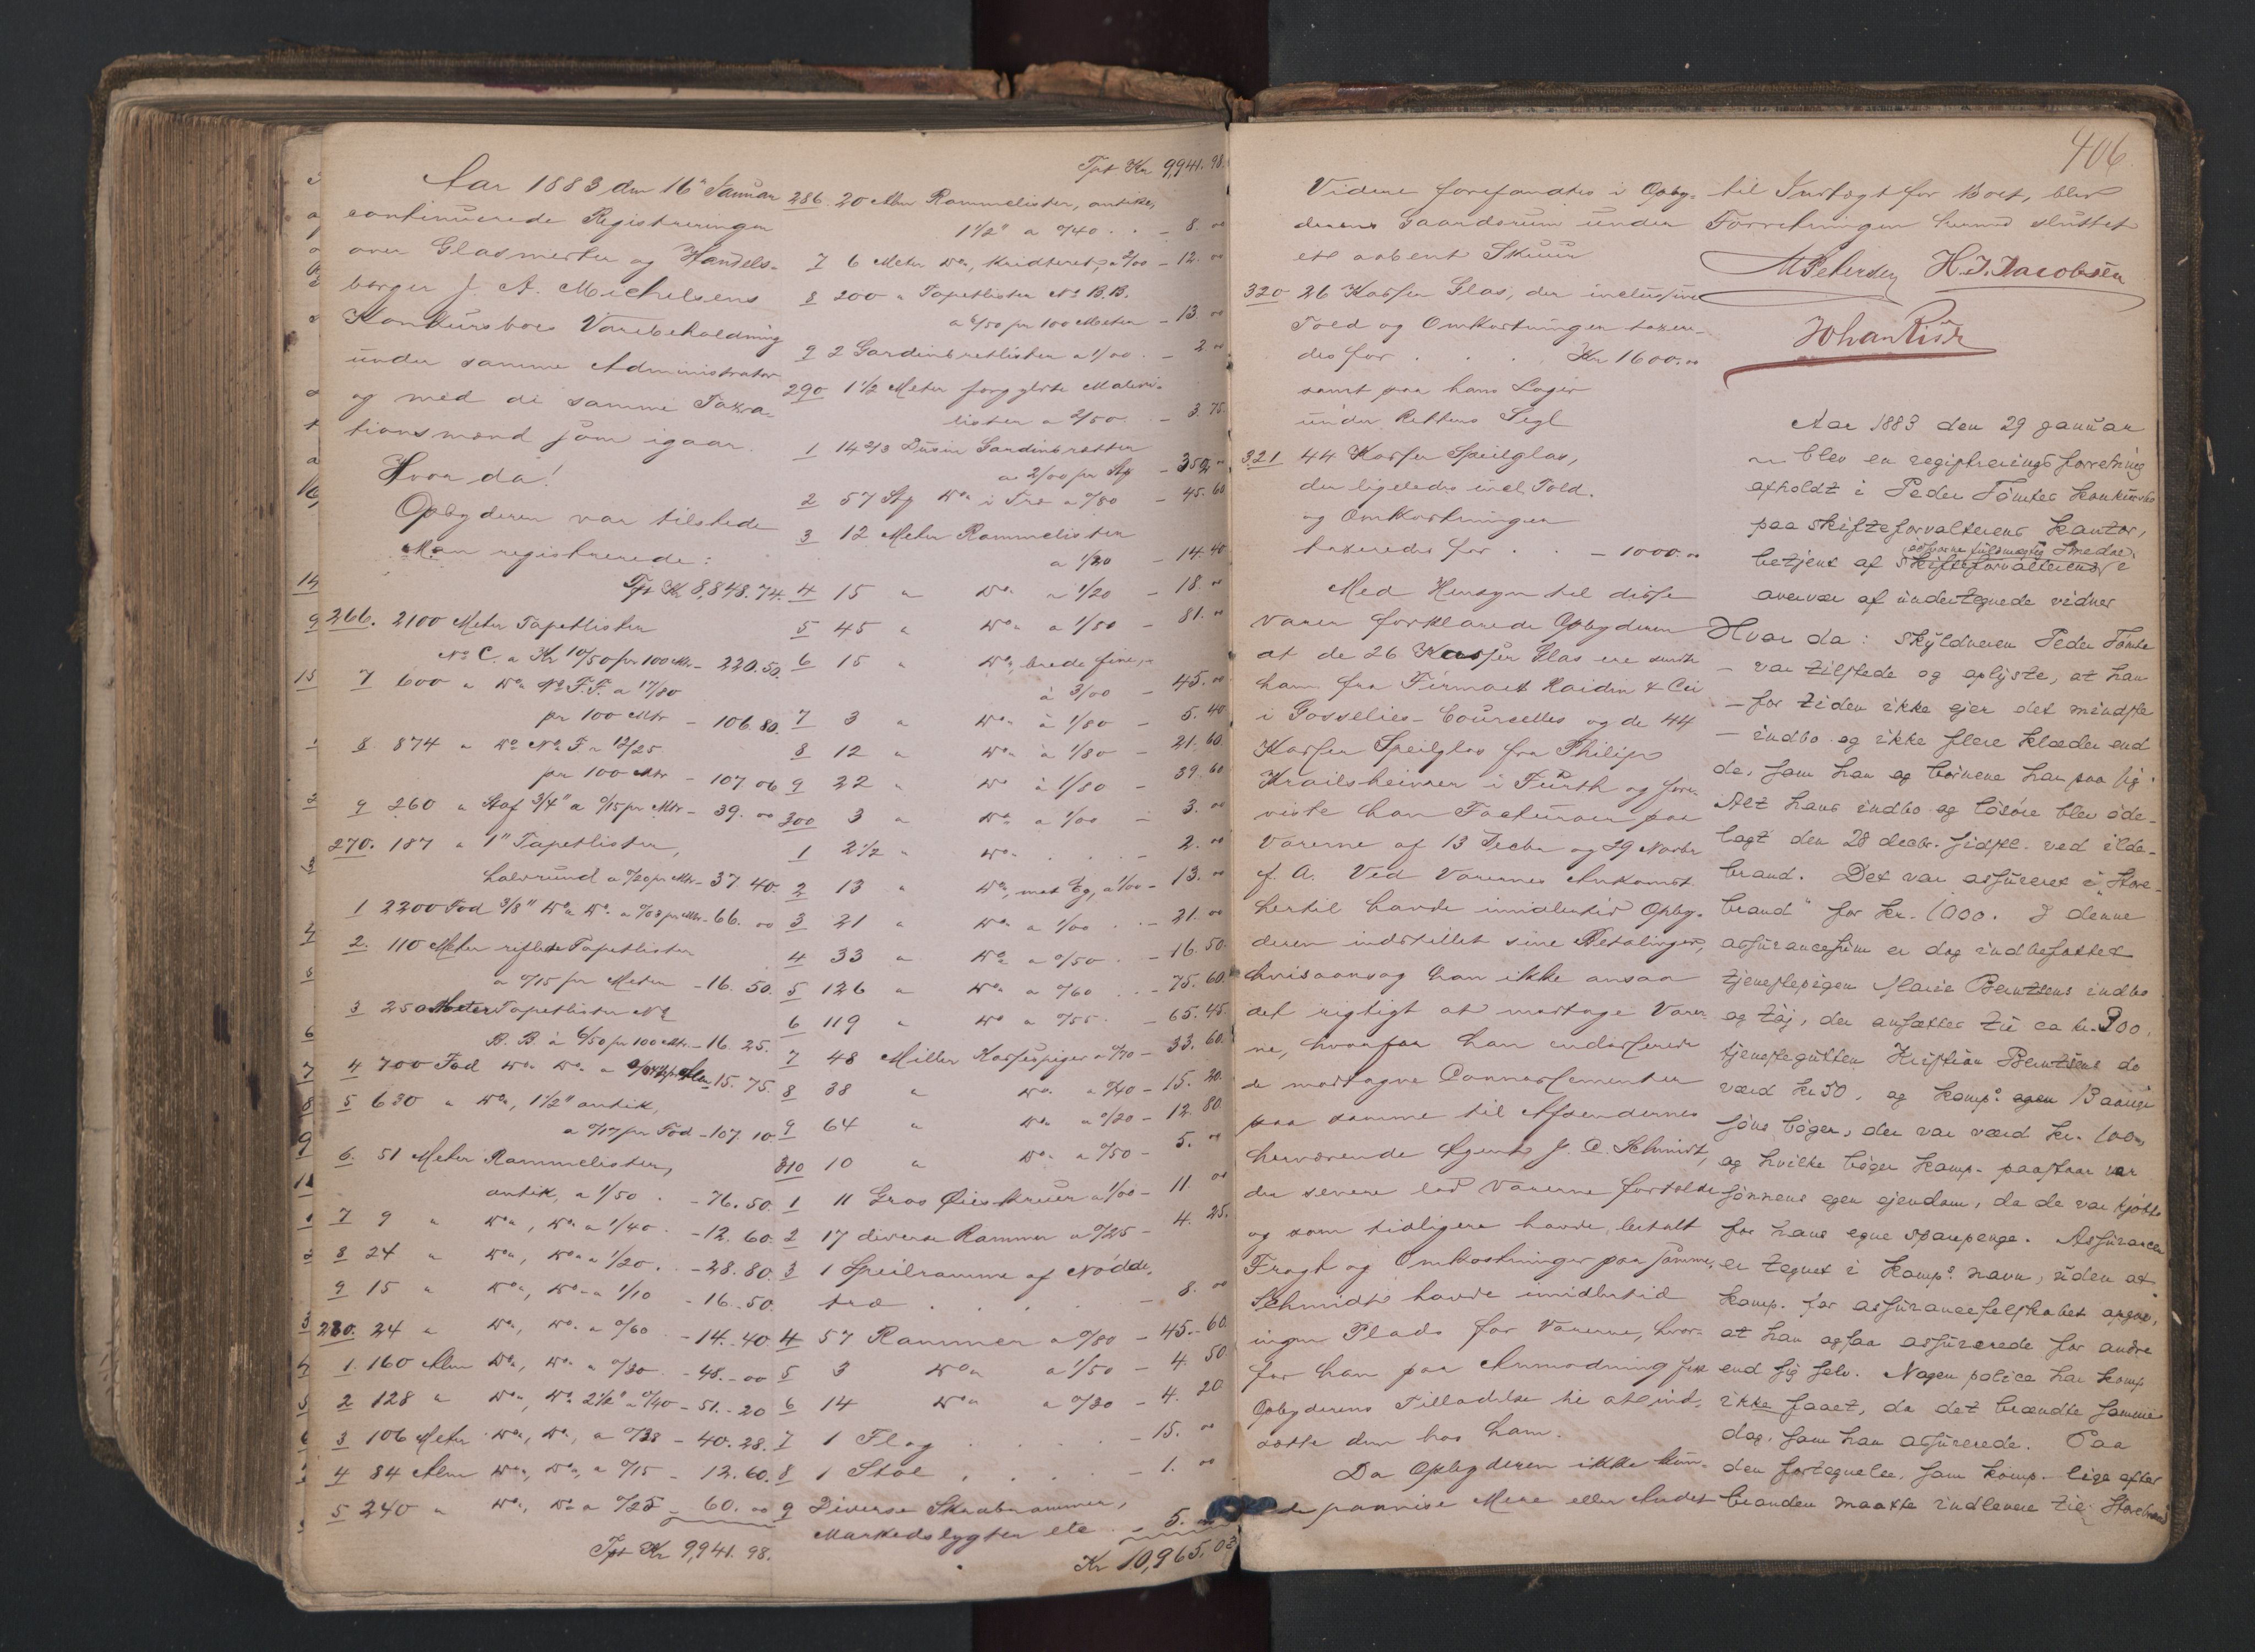 Aar 1883 den 16' Januar
continuerede Registreringen
over Glasmester og Handels-
borger J. A. Michelsens
Konkursboes Varebeholdning
under samme Administrator
og med de samme Taxa-
tionsmænd som igaar.
Hvor da!
Opbyderen var tilstede
Man registrerede:
Tpt Kr 8,848.74.
266. 2100 Meter Tapetlister
No C. a Kr 10/50 pr 100 Mtr - 220.50
7 600 " Do No F.F. a 17/80
pr 100 Mtr - 106.80.
8 874 " Do No F a 12/25
pr 100 Mtr - 107.06
9 260 " Staf 3/4" a 0/15 pr Mtr - 39.00
270. 187 " 1" Tapetlister,
halvrund a 0/20 pr Mtr - 37.40.
1 2200 Fod 3/8" Do Do a 0/03 pr Mtr - 66.00
2. 110 Meter riflede Tapetlister
a 0/15 pr Meter - 16.50.
3 250 Meter Tapetlister No
B.B. à 6/50 pr 100 Mtr. - 16.25.
4 700 Fod Do Do a 15.75
5 630 " Do, 1 1/2" antik,
a 0/17 pr Fod - 107.10
6. 51 Meter Rammelister,
antik, a 1/50 . - 76.50.
7 9 " Do, Do a 1/40 . - 12.60.
8 24 " Do, Do a 1/20 . - 28.80.
9 15 " Do, Do a 1/10 - 16.50.
280. 24 " Do, Do a 0/60 - 14.40
1. 160 Alen Do, Do a 0/30 - 48.00
2 128 " Do, Do 2 1/2" a 0/40 - 51.20
3 106 Meter Do, Do, a 0/38 - 40.28.
4 84 Alen Do, Do, a 0/15 - 12.60.
5 240 " Do, Do a 0/25 - 60.00
Tpt Kr 9,941.98.
Tpt Kr 9,941.98.
286. 20 Alen Rammelister, antike,
1 1/2" a 0/40 . . - 8.00
7 6 Meter Do, kridteret, a 2/00 - 12.00
8 200 " Tapetlister No B.B.
a 6/50 pr 100 Meter - 13.00
9 2 Gardinbretlister a 1/00 . - 2.00
290 1 1/2 Meter forgyldte Maleri-
lister a 2/50 . - 3.75.
1 14 2/3 Dusin Gardinbretter
a 2/00 pr Stk - 352.00
2 57 Stk Do i Træ a 0/80 - 45.60
3 12 Meter Rammelister
a 1/20 - 14.40
4 15 " Do a 1/20 - 18.00
5 45 " Do a 1/80 - 81.00
6 15 " Do, brede fine,
à 3/00 - 45.00
7 3 " Do à 1/80 - 5.40
8 12 " Do à 1/80 - 21.60.
9 22 " Do à 1/80 - 39.60
300 3 " Do a 1/00 - 3.00
1 2 1/2 " Do . . . - 2.00
2 13 " Do, mat Eg, a 1/00 - 13.00
3 21 " Do a 1/00 . - 21.00
4 33 " Do a 0/50 . - 16.50.
5 126 " Do a 0/60 . - 75.60.
6 119 " Do a 0/55 . - 65.45.
7 48 Miller Kassespiger a 0/70 - 33.60.
8 38 " Do a 0/40 - 15.20.
9 64 " Do a 0/20 - 12.80
310 10 " Do a 0/50 - 5.00
1 11 Gros Øieskruer a 1/00 - 11.00
2 17 diverse Rammer a 0/25 - 4.25.
3 1 Speilramme af Nødde,
træ . . . . - 8.00
4 57 Rammer a 0/80 - 45.60
5 3 Do a 1/50 - 4.50
6 14 Do a 0/30 - 4.20
7 1 Flag . . . . - 15.00
8 1 Stol . . . . - 1.00
9 Diverse Skrabrammer,
Markedslygter etc . - 5.00
Kr 10,965.03
406.
Videre forefandtes i Opby-
derens Gaardsrum under
et aabent Skuur
320 26 Kasser Glas, der inclusive
Told og Omkostninger taxere-
des for . . . Kr 1600.00
samt paa hans Lager
under Rettens Segl
321 44 Kasser Speilglas,
der ligeledes incl Told.
og Omkostninger
taxeredes for . . - 1000.00
Med Hensyn til disse
Varer forklarede Opbyderen
at de 26 Kasser Glas ere sendte
ham fra Firmaet Haidin & Cie
i Gosselies-Courcelles og de 44
Kasser Speilglas fra Philip
Krailsheimer i Fürth og fore-
viste han Facturaer paa
Varerne af 13 Decbr og 29 Novbr
f. A. Ved Varernes Ankomst
hertil havde imidlertid Opby-
deren indstillet sine Betalinger,
hvisaarsag han ikke ansaa
det rigtigt at modtage Varer-
ne, hvorfor han endosserede
de modtagne Connossementer
paa samme til Afsendernes
herværende Agent J. C. Schmidt,
der senere lod Varerne fortolde
og som tidligere havde betalt
Fragt og Omkostninger paa samme.
Schmidt havde imidlertid
ingen Plads for Varerne, hvor-
for han paa Anmodning fik
Opbyderens Tilladelse til at ind-
sætte dem hos ham.
Da Opbyderen ikke kun-
de paavise Mere eller Andet
til Indtægt for Boet, blev
Forretningen hermed sluttet
M Petersen H. J. Jacobsen
Johan Riis
Aar 1883 den 29 januar
blev en registreringsforretning
afholdt i Peder Tømtes konkursbo
paa skifteforvalterens kontor,
edsvorne fuldmægtig Smedae
betjent af skifteforvalterens i
overvær af undertegnede vidner
Hvor da: skyldneren Peder Tømte
- var tilstede og oplyste, at han
- for tiden ikke ejer det mindste
- indbo og ikke flere klæder end
de, som han og børnene har paa sig.
Alt hans indbo og løsøre blev øde-
lagt den 28 decbr. sidstl. ved ilde-
brand. Det var assureret i „Store-
brand" for kr. 1000. I denne
assurancesum er dog indbefattet
tjenestepigen Marie Berntsens indbo
og tøj, der ansættes til ca kr. 300,
tjenestegutten Kristian Berntsens do
værd kr 50, og komp: egen 13 aarige
søns bøger, der var værd kr. 100,
og hvilke bøger komp. paastaar var
sønnens egen ejendom, da de var kjøbte
for hans egne sparepenge. Assurancen
er tegnet i komp: navn, uden at
komp. for assuranceselskabet opgav,
at han ogsaa assurerede for andre
end sig selv. Nogen police har komp
ikke faaet, da det brændte samme
dag, som han assurerede. Paa
den fortegnelse, som komp. lige efter
branden maatte indlevere til Storebrand